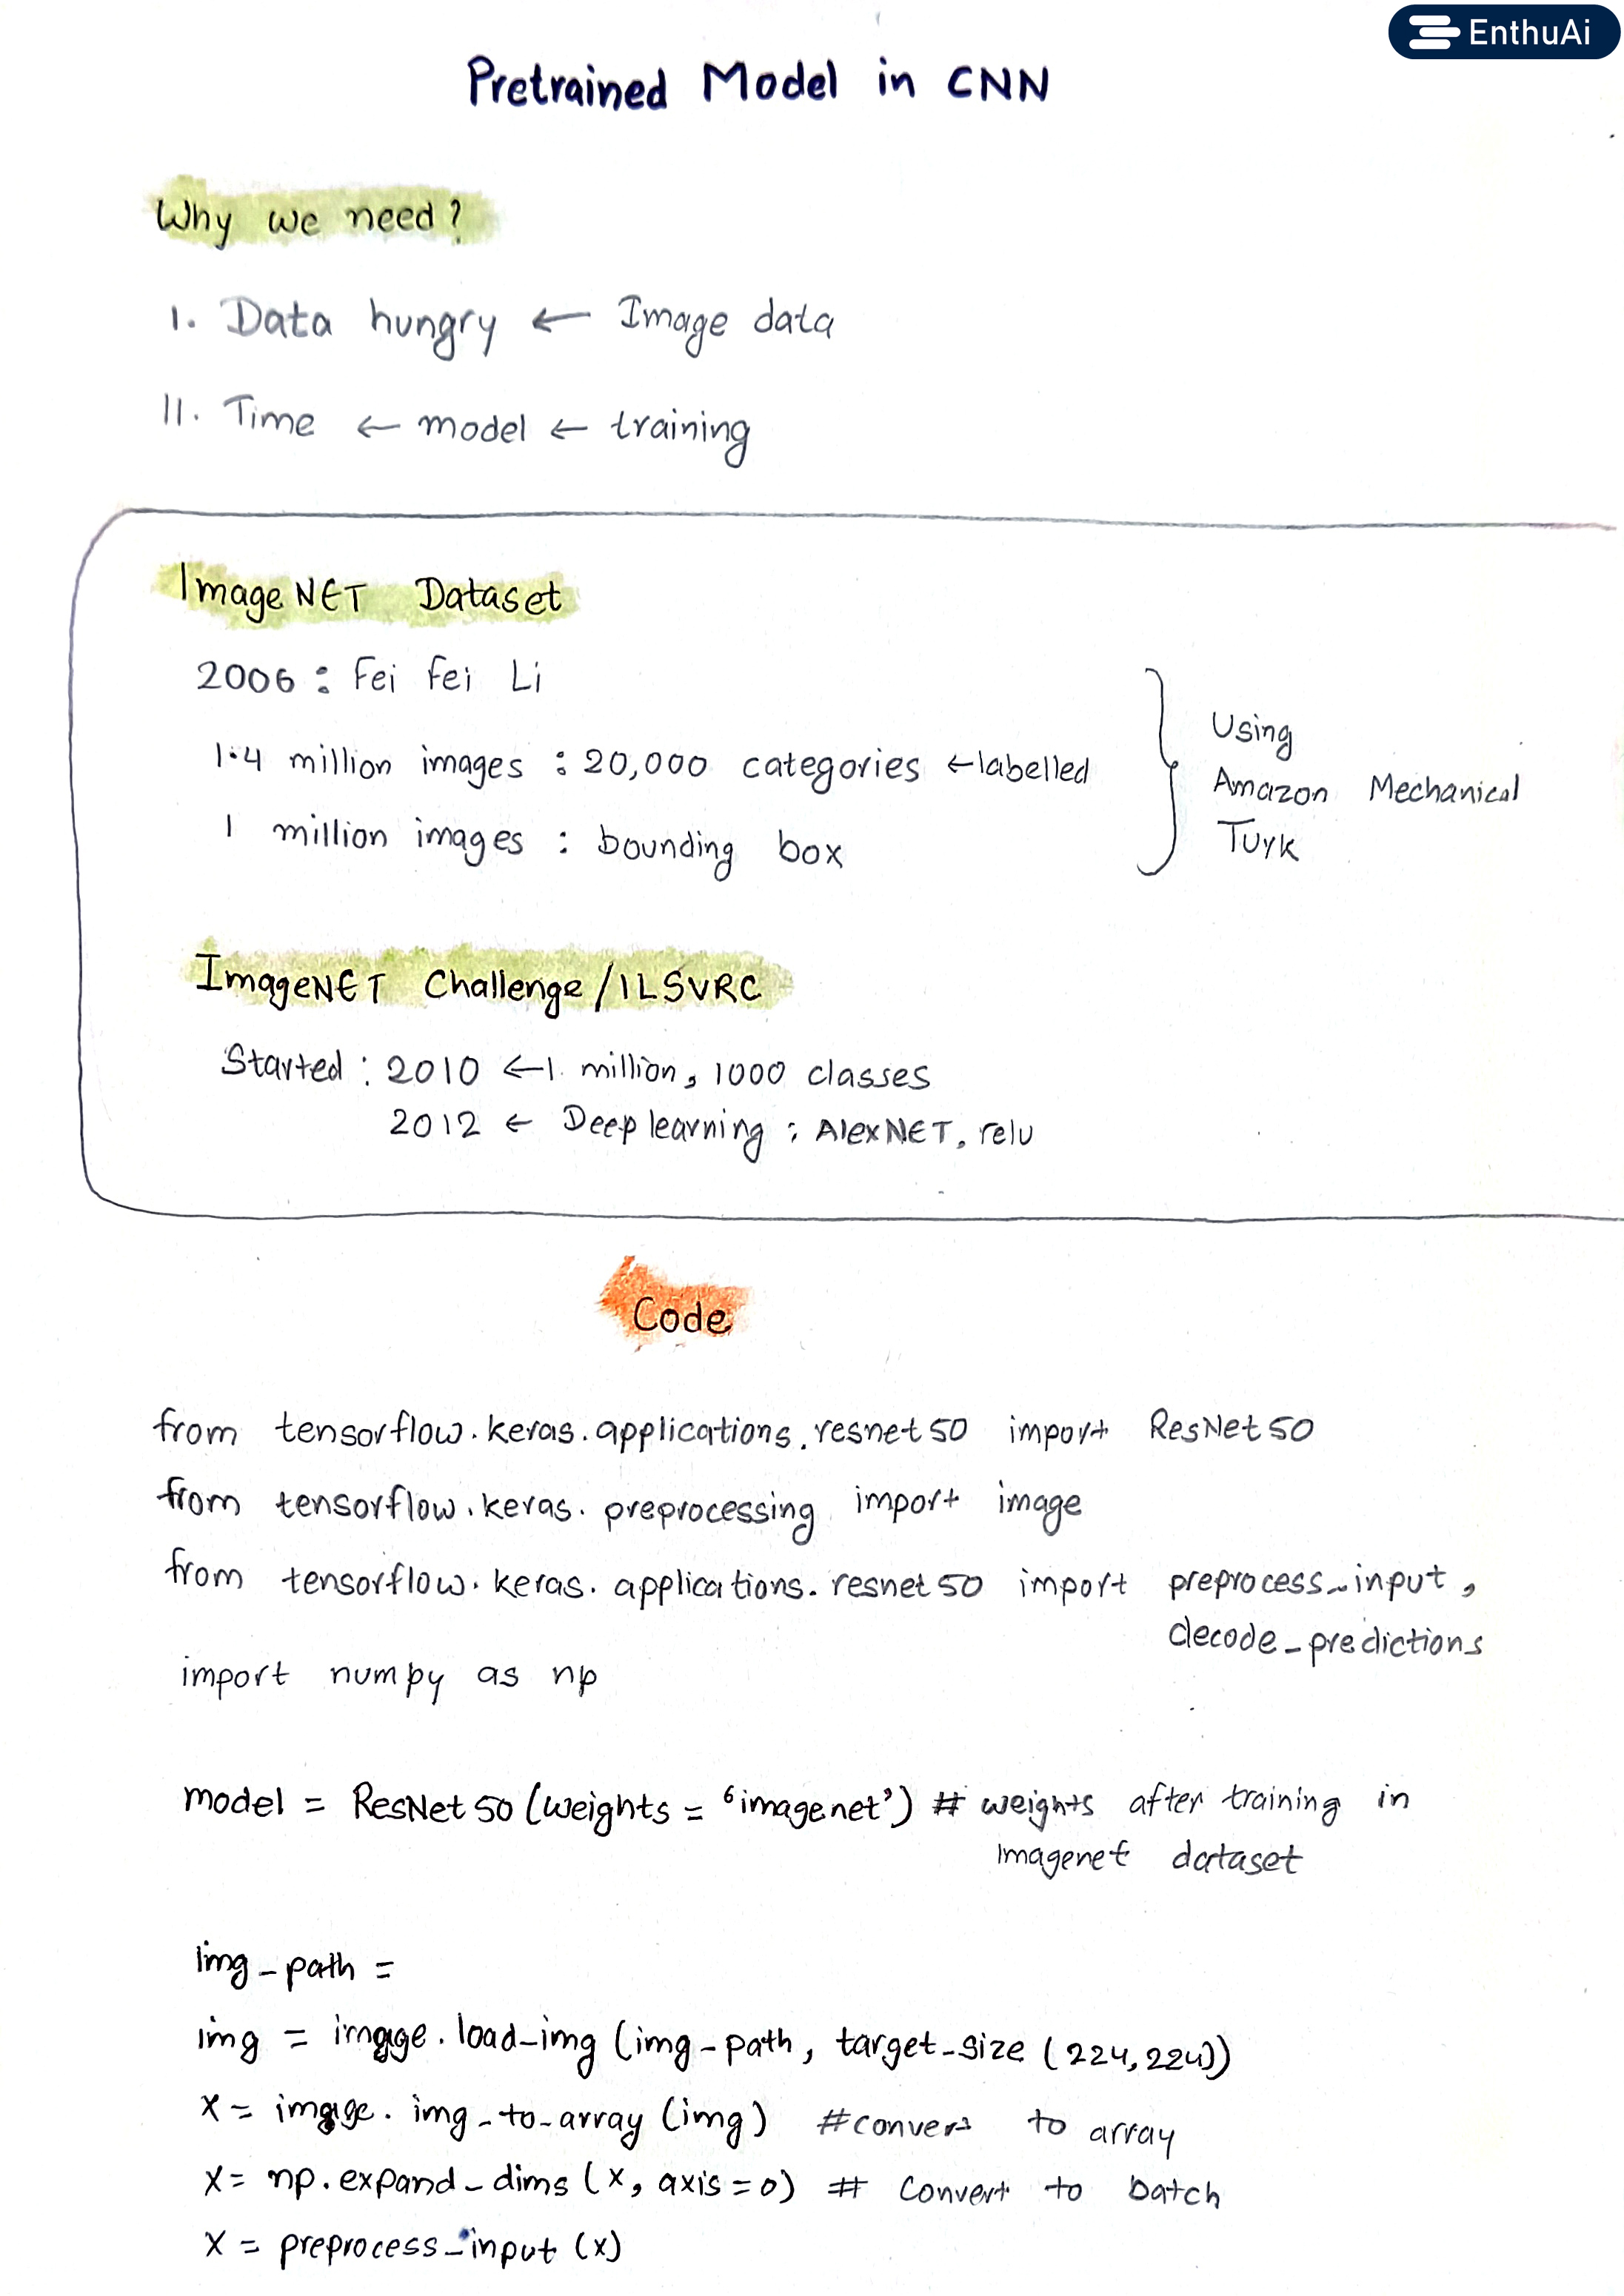 EnthuAi
Pretrained Model in CNN
Why we need?
I. Data hungry ← Image data
II. Time ← model ← training
ImageNET Dataset
2006 : Fei Fei Li
1.4 million images : 20,000 categories ← labelled
1 million images : bounding box
Using
Amazon Mechanical
Turk
ImageNET Challenge/ILSVRC
Started : 2010 ← 1. million, 1000 classes
2012 ← Deep learning : AlexNET, relu
Code
from tensorflow.keras.applications.resnet50 import ResNet50
from tensorflow.keras.preprocessing import image
from tensorflow.keras.applications.resnet50 import preprocess_input,
decode_predictions
import numpy as np
model = ResNet50(weights = 'imagenet') # weights after training in
Imagenet dataset
img_path =
img = image.load_img (img_path, target_size (224,224))
X = image.img_to_array (img) #convert to array
X = np.expand_dims (x, axis=0) # Convert to batch
X = preprocess_input (x)